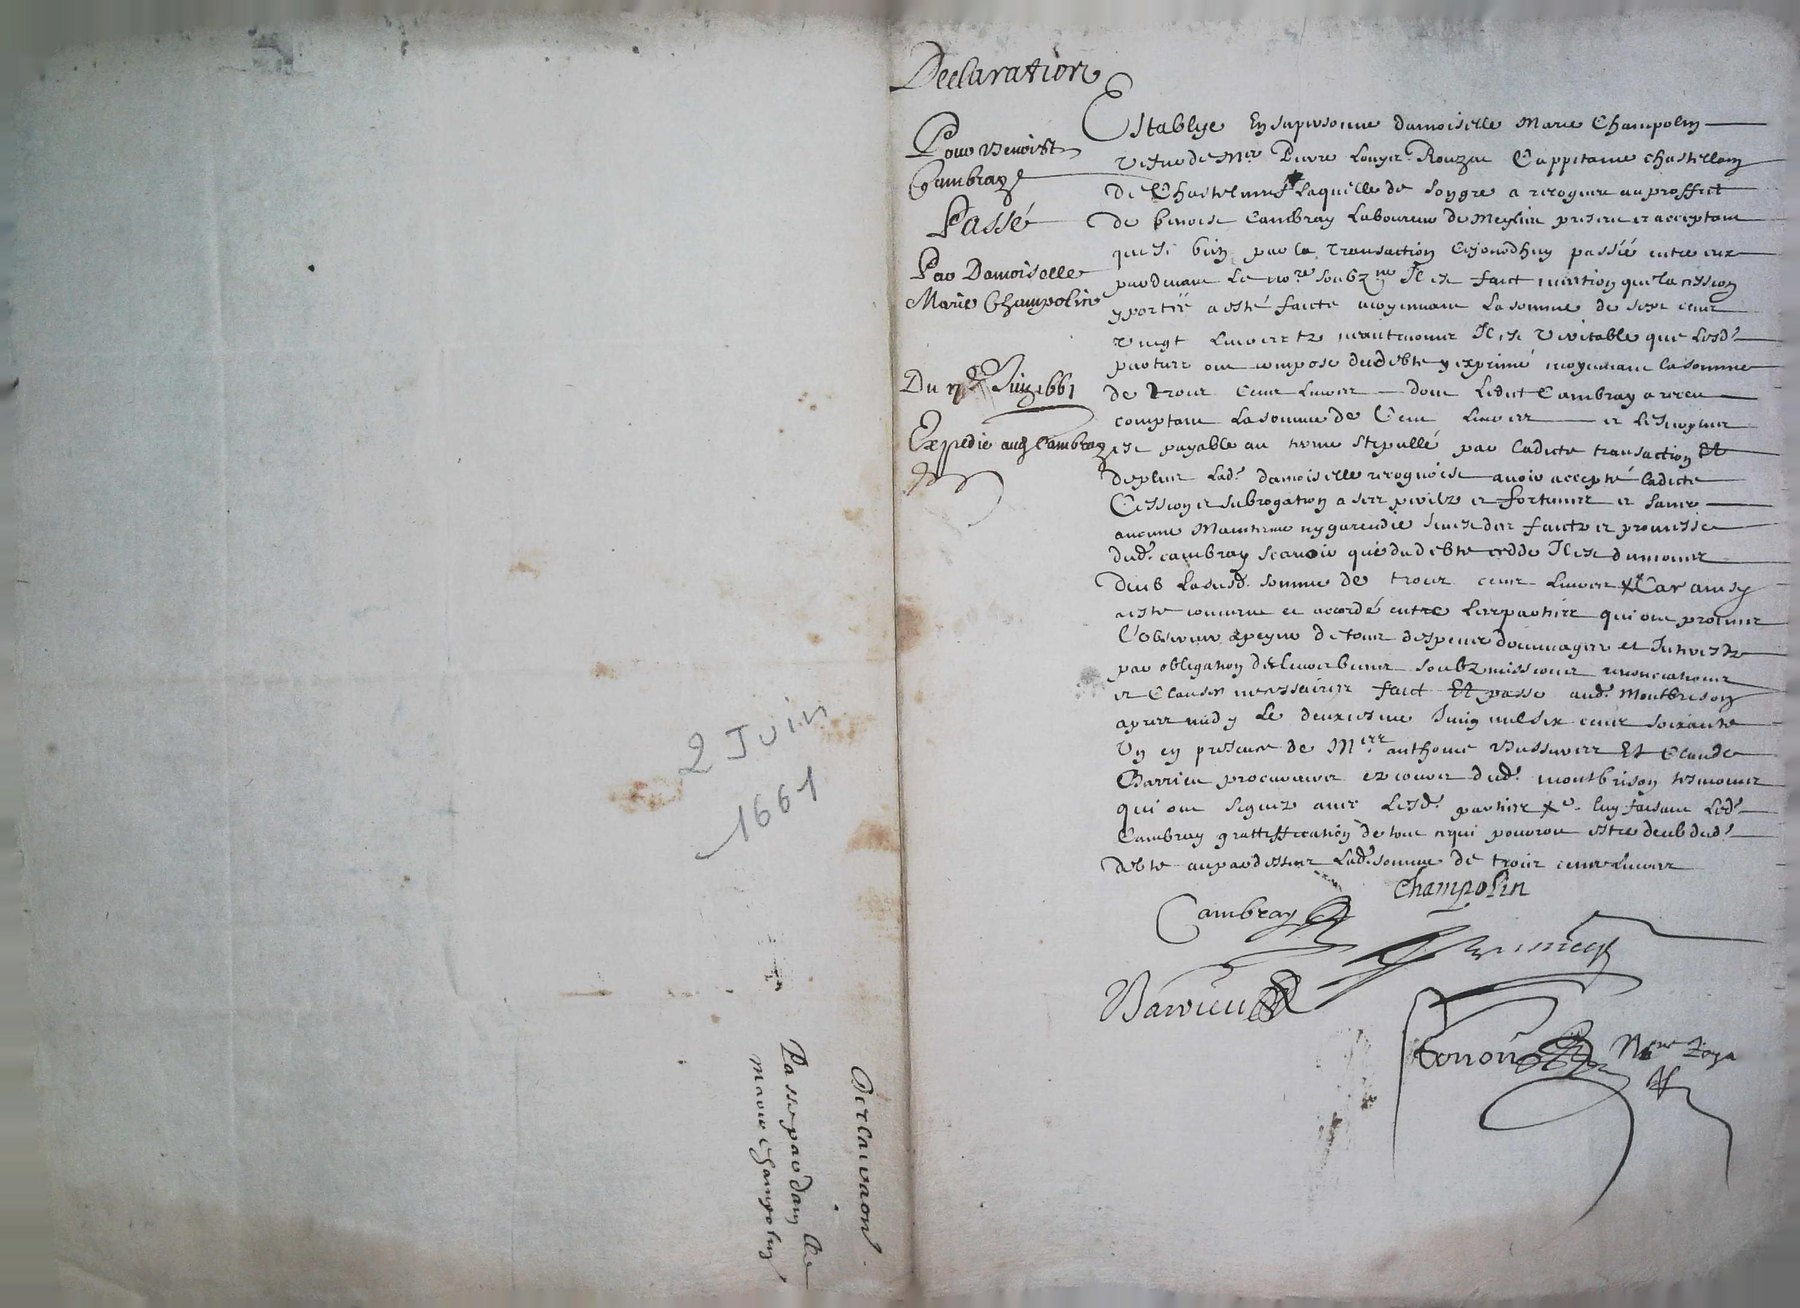 Declaration
Pour Benoist
Cambray
Passé
Par Damoiselle
Marie Champolin
Du Juin 1661
Expedié aud Cambray
Establye En sa personne damoiselle Marie Champolin
vefve de Mre Pierre Louyer Rouzac Cappitaine chastellain
de Chastelneuf Laquelle de songre a recogneu au proffict
de benoist Cambray Laboureur de Meylieu present et acceptant
que si bien par la Transaction Cejourdhuy passée entre eux
pardevant Le nore soubzne Il est faict mention que la cession
y portée a esté faicte moyennant La somme de sept cent
vingt Livres tz neantmoins Il est veritable que Lesd
parties ont compose dud debte y exprimé moyennant la somme
de trois Cent Livres dont Ledit Cambray a receu
comptant La somme de Cent Livres et Le surplus
est payable au terme stipullé par Ladicte transaction Et
de plus Lad damoiselle recognoist avoir accepté Ladicte
Cession et subrogation a ses perilz et fortunes et sans
aucune Maintenue ny garendie sinon des faictz et promesse
dud cambray scavoir que dud debte cedde Il est du moins
deub La susd somme de trois cent Livres Car ainsy
a esté convenu et accordé entre Les parties qui ont promis
L'observer a peyne de tous despens dommages et Interestz
par obligation de Leurs biens soubzmissions renonciations
et Clauses necessaires faict Et passé aud Montbrison
apres midy Le deuxiesme Juing mil six cent soixante
Un en presence de Mres anthoine Et Claude
Barrieu procureur ez cours dud montbrison tesmoins
qui ont signez avec Lesd parties Luy faisant Led
Cambray grattiffication de tout ce qui pourroit estre deub dud
debte au par dessus Lad somme de trois cent Livres
Champolin
Cambray
Barrieu
2 Juin
1661
Declaraon
Passe par dam lle
Marie Champolin